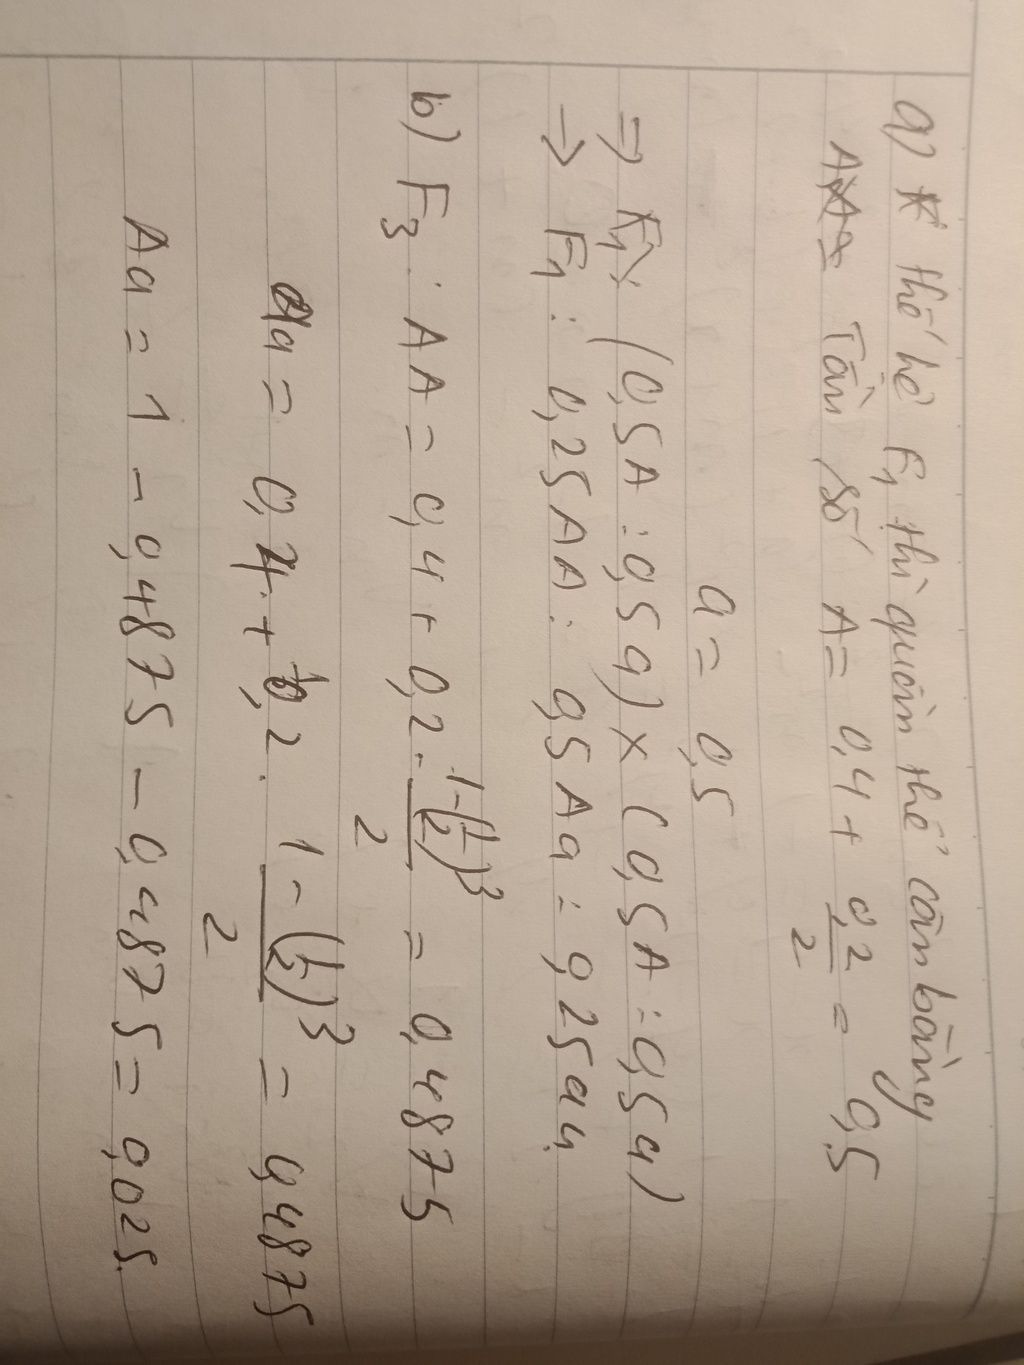 a) * thế hệ F₁ thì quần thể cân bằng
Tần số A = 0,4 + 0,2/2 = 0,5
a = 0,5
=> F₁: (0,5A : 0,5a) x (0,5A : 0,5a)
-> F₁: 0,25AA : 0,5Aa : 0,25aa
b) F₃: AA = 0,4 + 0,2 . (1-(1/2)³)/2 = 0,4875
aa = 0,4 + 0,2 . (1-(1/2)³)/2 = 0,4875
Aa = 1 - 0,4875 - 0,4875 = 0,025.